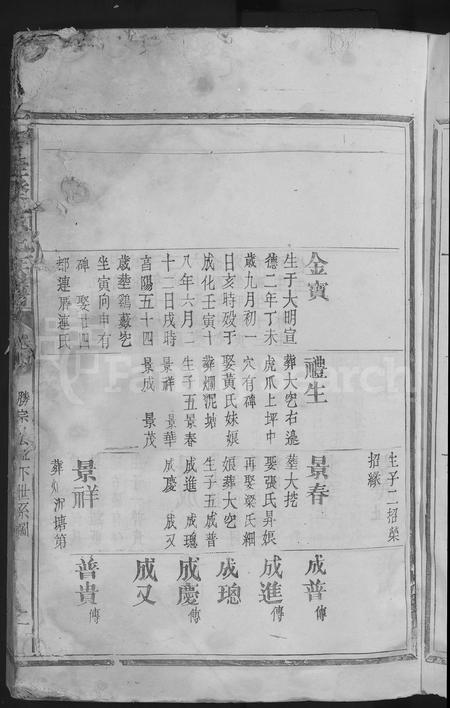 金寶
生于大明宣
德二年丁未
歲九月初一
日亥時歿于
成化壬寅十
八年六月二
十二日戌時
享陽五十四
歲葬鷄藪坑
坐寅向申有
碑 娶廿四
都連厝連氏
禮生
葬大坑右邊
虎爪上坪中
穴有碑
娶黃氏妹娘
葬爛泥塘
生子五景春
景祥 景華
景成 景茂
生子二招榮
招緣
景春
葬大挖
娶張氏昇娘
再娶梁氏細
娘葬大空
生子五成普
成進 成璁
成慶 成又
景祥
葬 泥塘第
成普傳
成進傳
成璁
成慶傳
成又
普貴傳
勝宗公位下世系圖